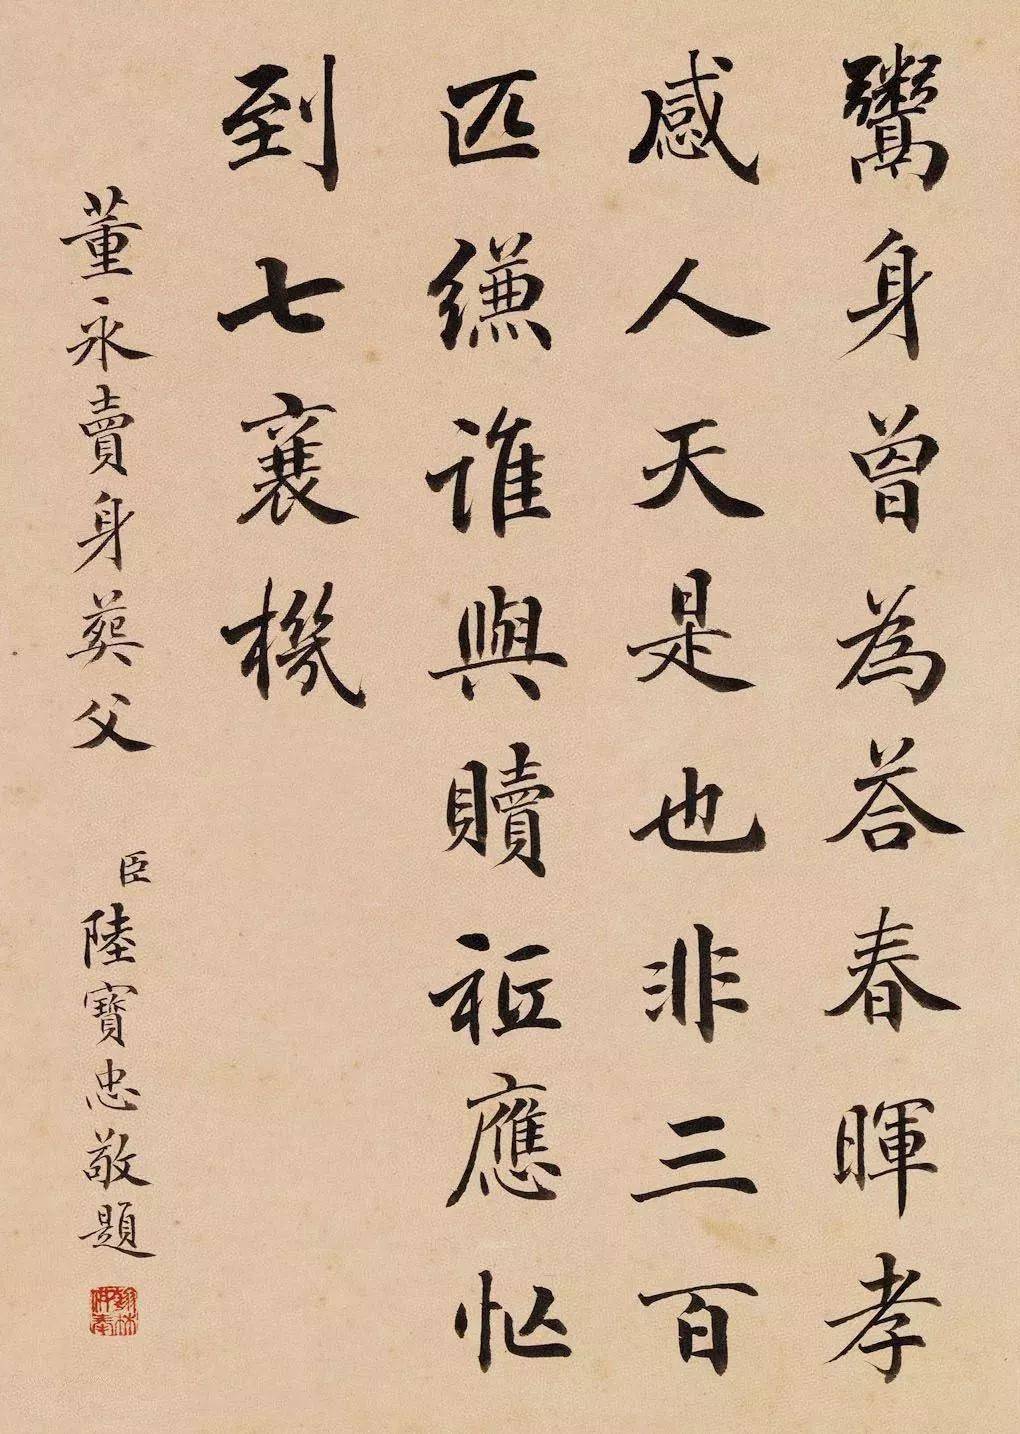 鬻身曾為荅春暉孝
感人天是也非三百
匹縑誰與贖祗應忙
到七襄機
董永賣身葬父 臣陸寶忠敬題
翰林供奉